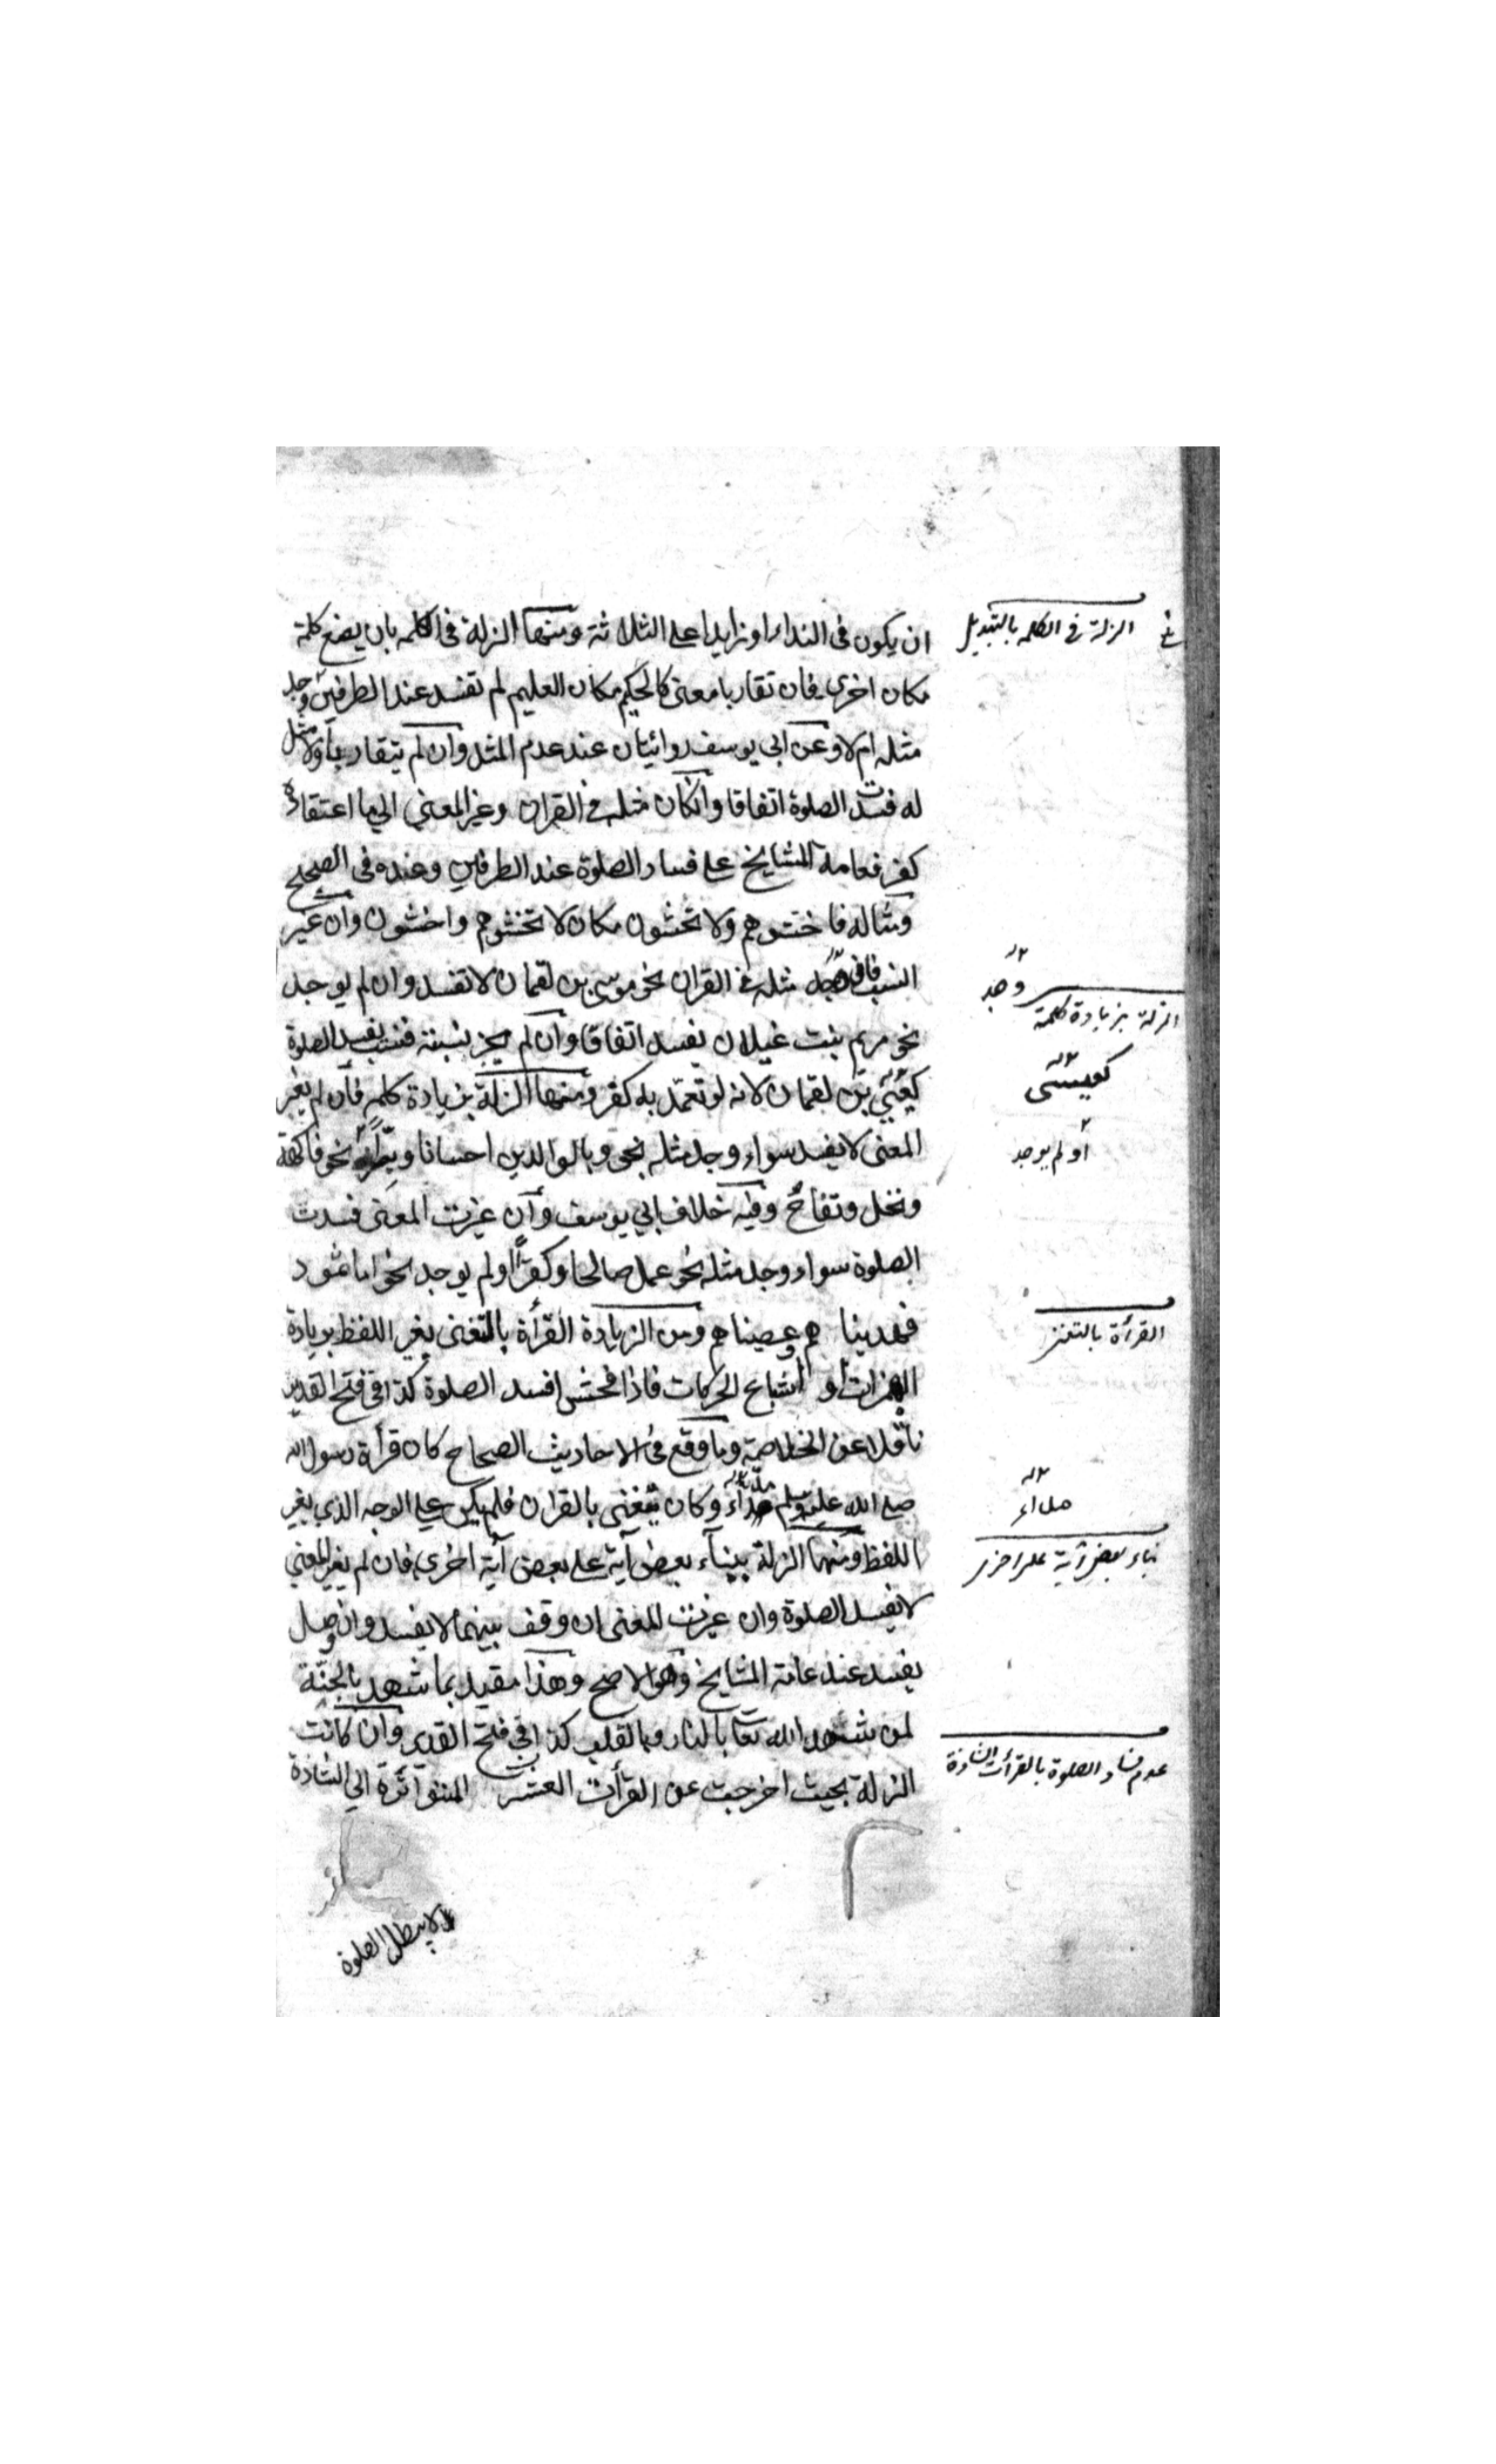 ان يكون فى النداء او زايدا على الثلاثة ومنها الزلة فى الكلمه بان يضع كلمة
مكان اخرى فان تقاربا معنى كالحكيم مكان العليم لم تفسد عند الطرفين وجد
مثله ام لا وعن ابى يوسف روايتان عند عدم المثل وان لم يتقاربا ولا مثل
له فسدت الصلوة اتفاقا وان كان مثله فى القران وغير المعنى الى ما اعتقاده
كفر فعامة المشايخ على فساد الصلوة عند الطرفين وعنده فى الصحيح
ومثاله فاخشوهم ولا تخشون مكان لا تخشوهم واخشون وان غير
النسب فان وجد مثله فى القران نحو موسى بن لقمان لا تفسد وان لم يوجد
نحو مريم بنت غيلان يفسد اتفاقا وان لم يجز نسبته فنسب يفسد الصلوة
كعيسى بن لقمان لانه لو تعمد به كفر ومنها الزلة بزيادة كلمة فان لم يغير
المعنى لا يفسد سواء وجد مثله نحو وبالوالدين احسانا وبرا نحو فاكهة
ونخل وتفاح وفيه خلاف ابى يوسف وان غيرت المعنى فسدت
الصلوة سواء وجد مثله نحو عمل صالحا وكفرا او لم يوجد نحو اما ثمود
فهديناهم وعصيناهم ومن الزيادة القرأة بالتغنى يغير اللفظ بزيادة
الهمزات او اشباع الحركات فاذا فحش افسد الصلوة كذا فى فتح القدير
ناقلا عن الخلاصة وما وقع فى الاحاديث الصحاح كان قرأة رسول الله
صلى الله عليه وسلم مدا وكان يتغنى بالقران فلم يكن على الوجه الذى يغير
اللفظ ومنها الزلة ببناء بعض آية على بعض آية اخرى فان لم يغير المعنى
لا يفسد الصلوة وان غيرت المعنى ان وقف بينهما لا يفسد وان وصل
يفسد عند عامة المشايخ وهو الاصح وهذا مقيد بما شهد بالجنة
لمن شهد الله تعا بالنار وبالقلب كذا فى فتح القدير وان كانت
الزلة بحيث اخرجت عن القرأت العشر المتواترة الى الشاذة
لا يبطل الصلوة
الزلة فى الكلمه بالتبديل
وجد
الزلة بزيادة كلمة
كعيسى
او لم يوجد
القرأة بالتغنى
بناء بعض آية على اخرى
عدم فساد الصلوة بالقرأت الشاذة